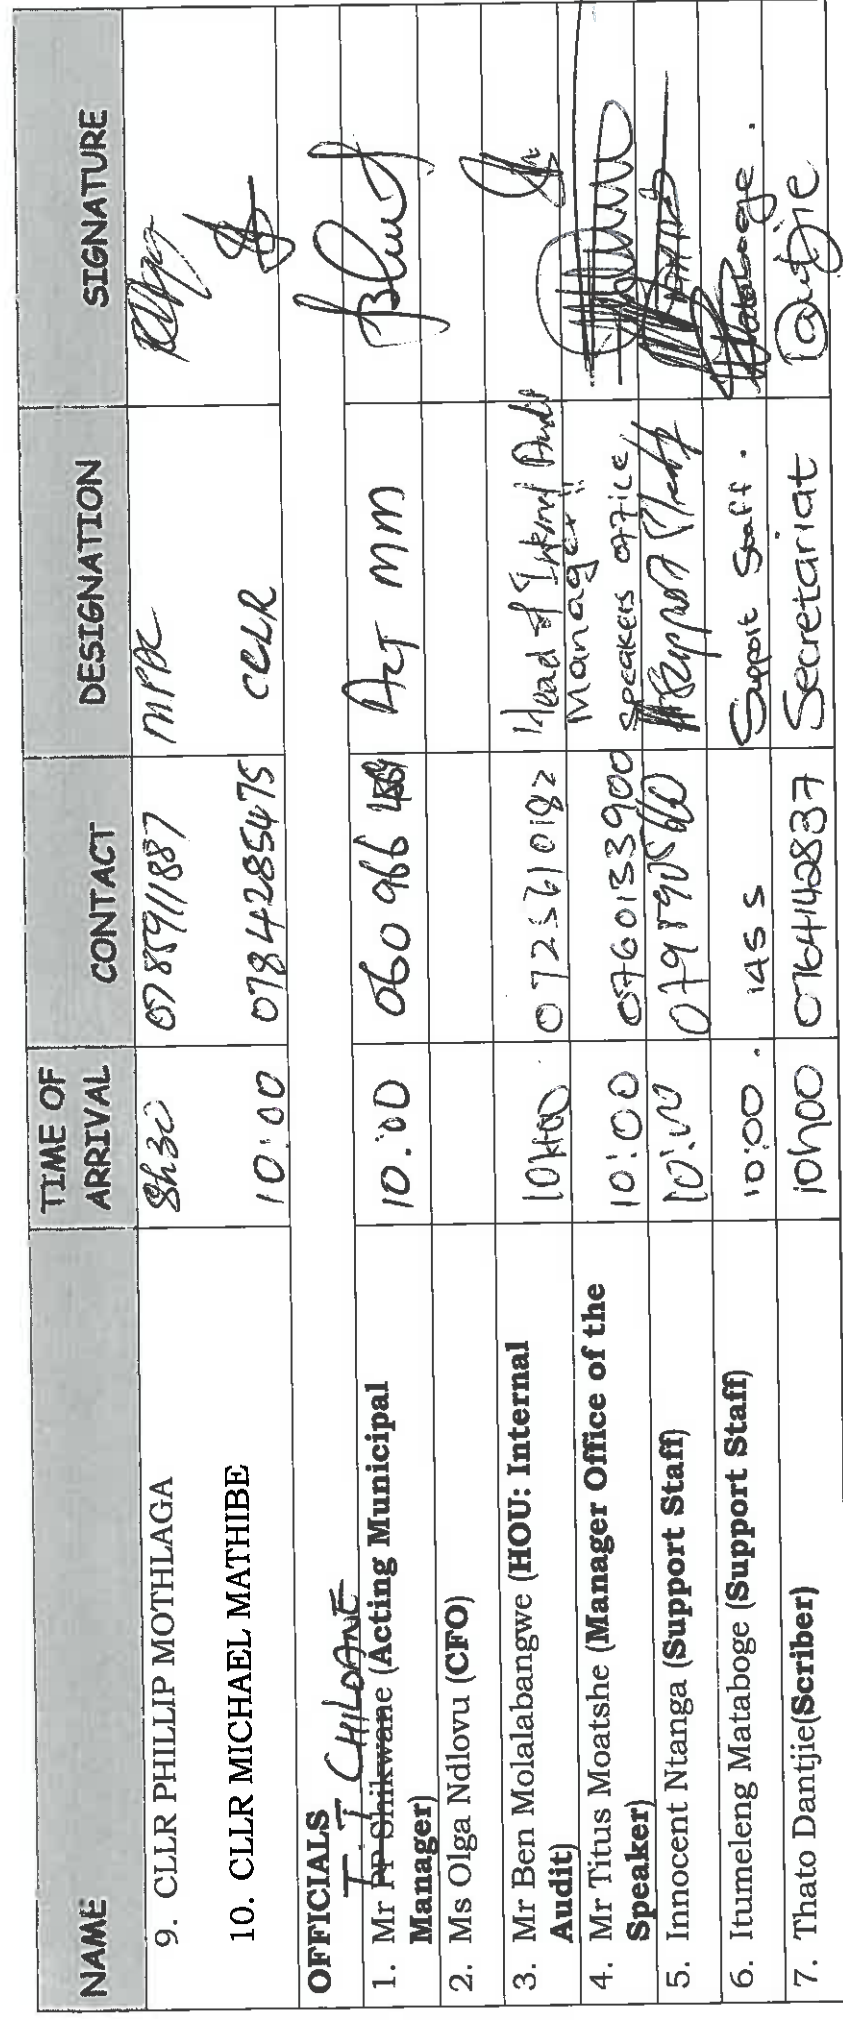 NAME TIME OF ARRIVAL CONTACT DESIGNATION SIGNATURE
9. CLLR PHILLIP MOTHLAGA 8h30 0785911887 MPAC
10. CLLR MICHAEL MATHIBE 10:00 0784285475 CLLR
OFFICIALS
T T CHILOANE
1. Mr PP Shikwane (Acting Municipal Manager) 10:00 060 966 Act MM
2. Ms Olga Ndlovu (CFO)
3. Mr Ben Molalabangwe (HOU: Internal Audit) 10H00 0725610182 Head of Internal Audit
4. Mr Titus Moatshe (Manager Office of the Speaker) 10:00 0760133900 Manager: speakers office
5. Innocent Ntanga (Support Staff) 10:00 Support Staff
6. Itumeleng Mataboge (Support Staff) 10:00. 1455 Support Staff. Mataboge.
7. Thato Dantjie(Scriber) 10h00 0764142837 Secretariat Dantjie